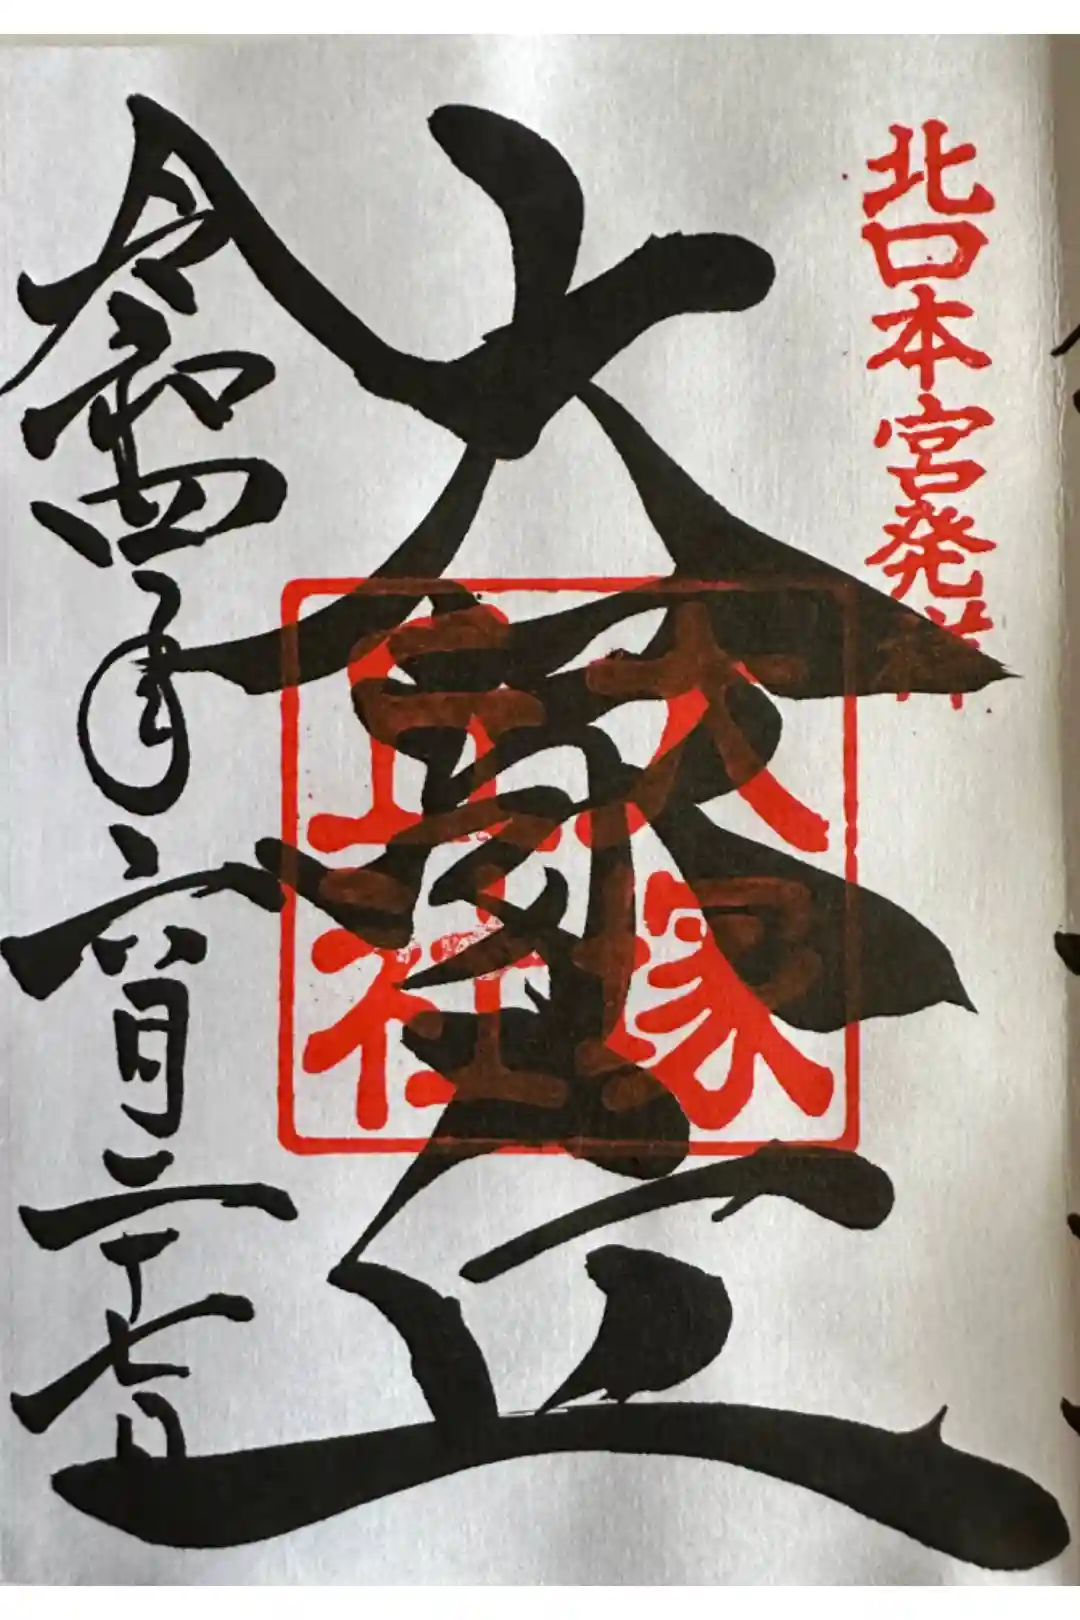 北口本宮発祥
大塚丘
大塚
丘社
令和四年六月二十七日